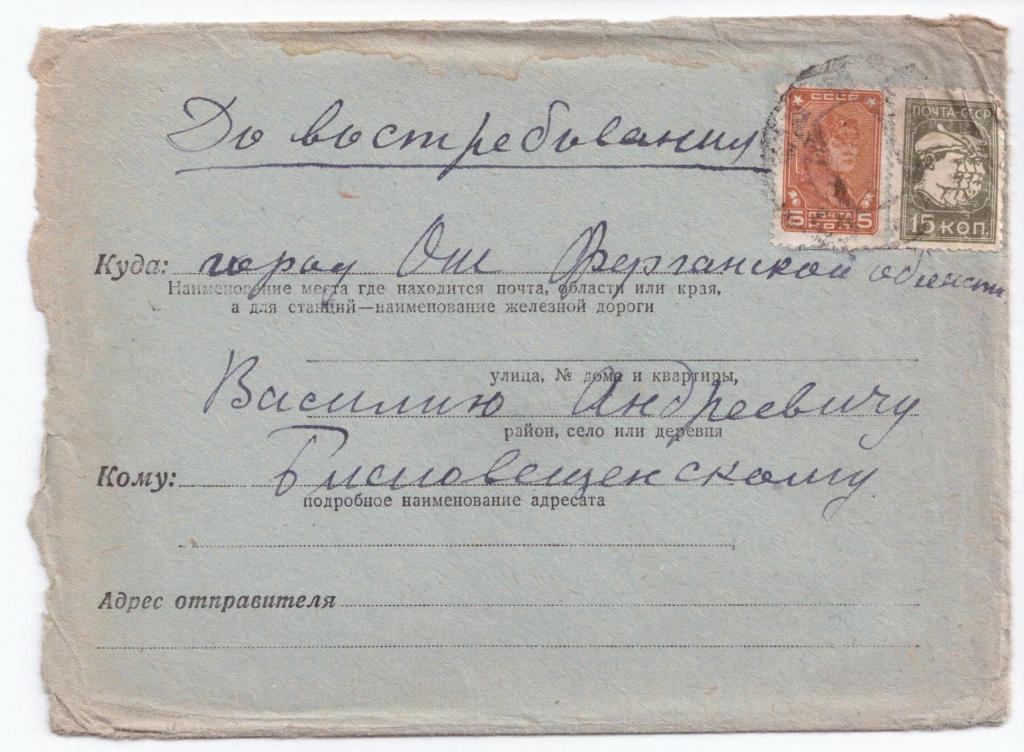 До востребования
СССР
5 ПОЧТА КОП. 5
ПОЧТА СССР
15 КОП.
Куда: город Ош Ферганской области
Наименование места где находится почта, области или края,
а для станций—наименование железной дороги
улица, № дома и квартиры,
Василию Андреевичу
район, село или деревня
Кому: Благовещенскому
подробное наименование адресата
Адрес отправителя